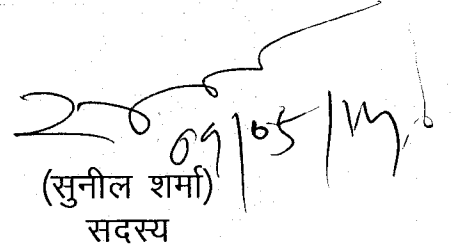 09/05/14
(सुनील शर्मा)
सदस्य